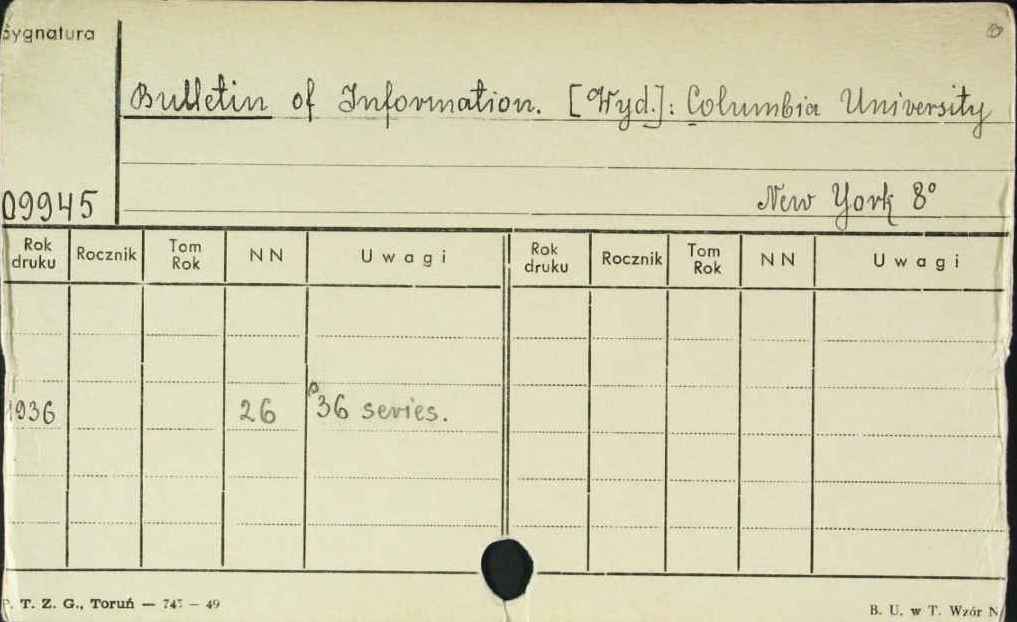 Sygnatura
Bulletin of Information. [Wyd.]: Columbia University
09945
New York 8°
Rok druku Rocznik Tom Rok NN Uwagi Rok druku Rocznik Tom Rok NN Uwagi
1936 26 36 series.
P. T. Z. G., Toruń — 747 — 49
B. U. w T. Wzór N